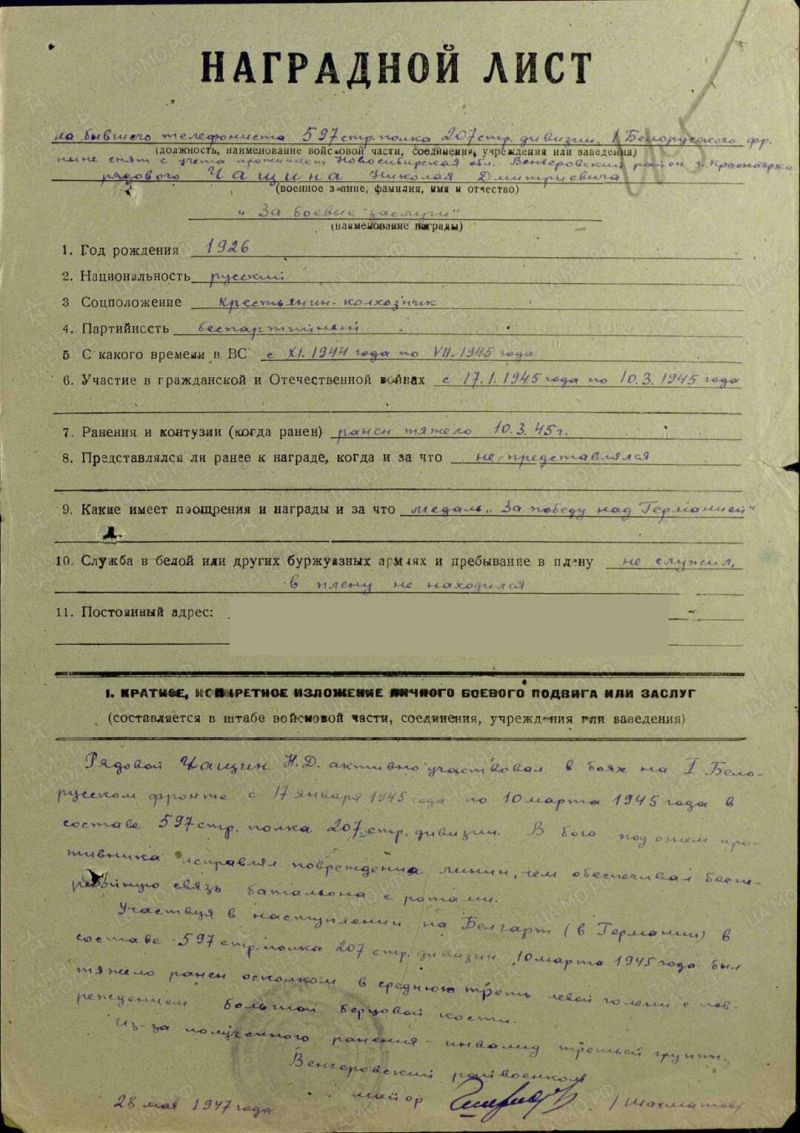 НАГРАДНОЙ ЛИСТ
на бывшего телефониста 597 стр. полка 207 стр. дивизии. I Белорусского фр.
(должность, наименование войсковой части, соединения, учреждения или заведения)
ныне снят с учета проживает Новосибирская обл. Венгеровский район д. Красноярка
рядового Чащина Николая Дмитриевича
(военное звание, фамилия, имя и отчество)
„За боевые заслуги"
(наименование награды)
1. Год рождения 1926
2. Национальность русский
3 Соцположение крестьянин-колхозник
4. Партийность беспартийный
5 С какого времени в ВС с XI. 1944 года по VII. 1945 года
6. Участие в гражданской и Отечественной войнах с 17. 1. 1945 года по 10. 3. 1945 года
7. Ранения и контузии (когда ранен) ранен тяжело 10. 3. 45 г.
8. Представлялся ли ранее к награде, когда и за что не представлялся
9. Какие имеет поощрения и награды и за что медаль „За победу над Германией"
10. Служба в белой или других буржуазных армиях и пребывание в плену не служил,
в плену не находился
11. Постоянный адрес:
I. КРАТКОЕ, КОНКРЕТНОЕ ИЗЛОЖЕНИЕ ЛИЧНОГО БОЕВОГО ПОДВИГА ИЛИ ЗАСЛУГ
(составляется в штабе войсковой части, соединения, учреждения или заведения)
Рядовой Чащин Н.Д. активно участвовал в боях на I Бело-
русском фронте с 17 января 1945 года по 10 марта 1945 года в
составе 597 стр. полка 207 стр. дивизии. В бою под огнем про-
тивника исправлял повреждения линии, чем обеспечивал беспе-
ребойную связь батальона с ротами.
Участвуя в наступлении на Белгарт (в Германии) в
составе 597 стр. полка 207 стр. дивизии 10 марта 1945 года был
тяжело ранен осколком в среднюю треть левой голени с пов-
реждением большой берцовой кости.
Из-за полученного ранения - инвалид третьей групп.
Венгеровский райвоенком
майор / Шахматов
28 мая 1947 года